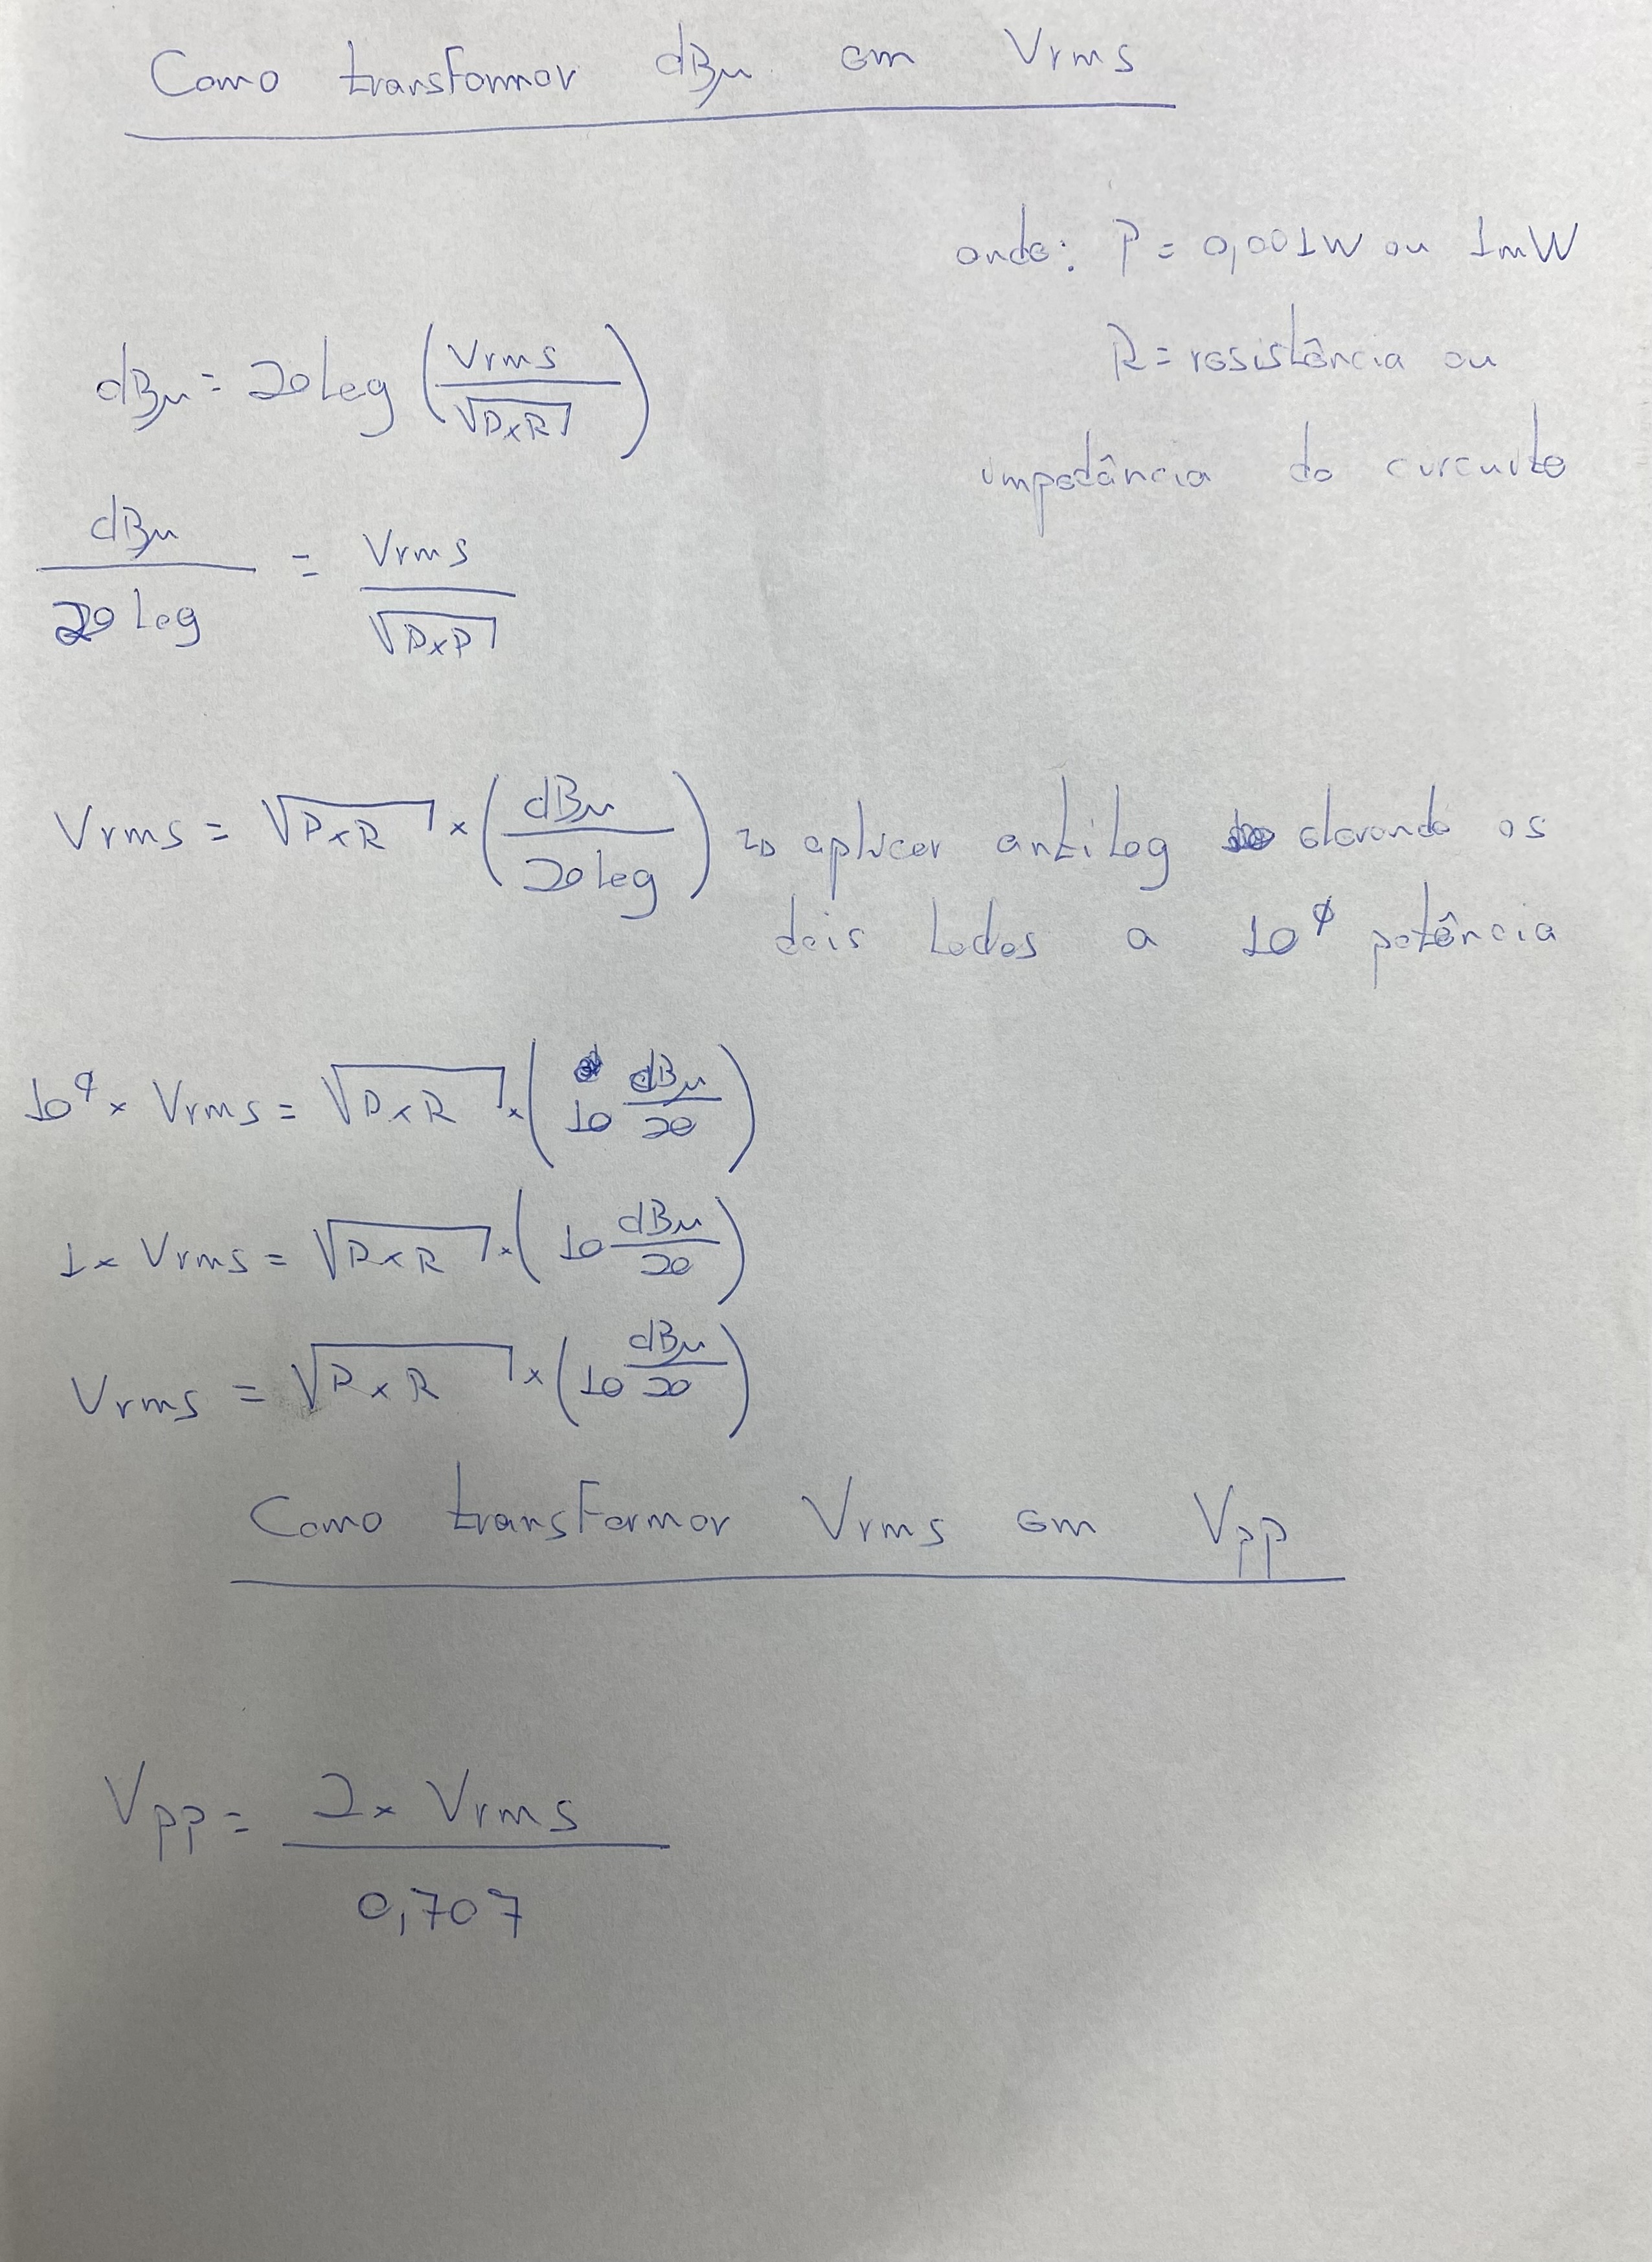 Como transformar dBu em Vrms
onde: P = 0,001W ou 1mW
R = resistência ou
impedância do circuito
dBu = 20 log (Vrms / √PxR)
dBu / 20 log = Vrms / √PxR
Vrms = √PxR x (dBu / 20 log) => aplicar antilog elevando os
dois lados a 10⁰ potência
10⁰ x Vrms = √PxR x (10 dBu/20)
1 x Vrms = √PxR x (10 dBu/20)
Vrms = √PxR x (10 dBu/20)
Como transformar Vrms em Vpp
Vpp = 2 x Vrms / 0,707